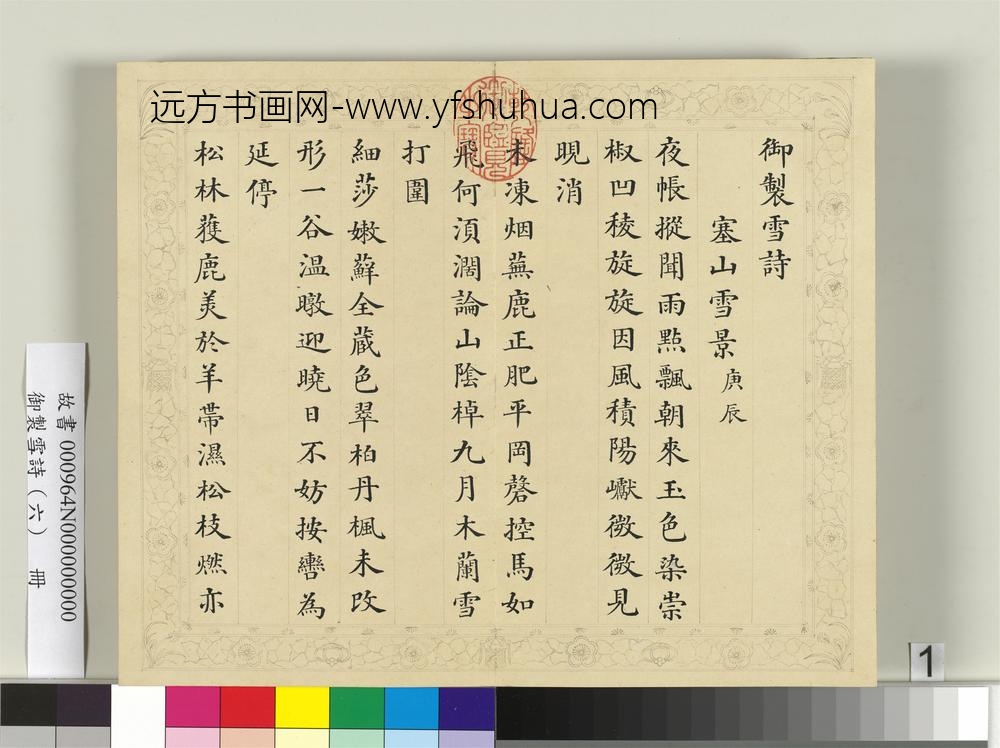 远方书画网-www.yfshuhua.com
御製雪詩
塞山雪景 庚辰
夜帳摐聞雨點飄朝來玉色染崇
椒凹稜旋旋因風積陽巘微微見
晛消
未凍烟蕪鹿正肥平岡磬控馬如
飛何湏濶論山陰棹九月木蘭雪
打圍
細莎嫩蘚全蔵色翠柏丹楓未改
形一谷温暾迎曉日不妨按轡為
延停
松林蒦鹿美於羊帶濕松枝燃亦
故書 000964N000000000
御製雪詩(六) 冊
1